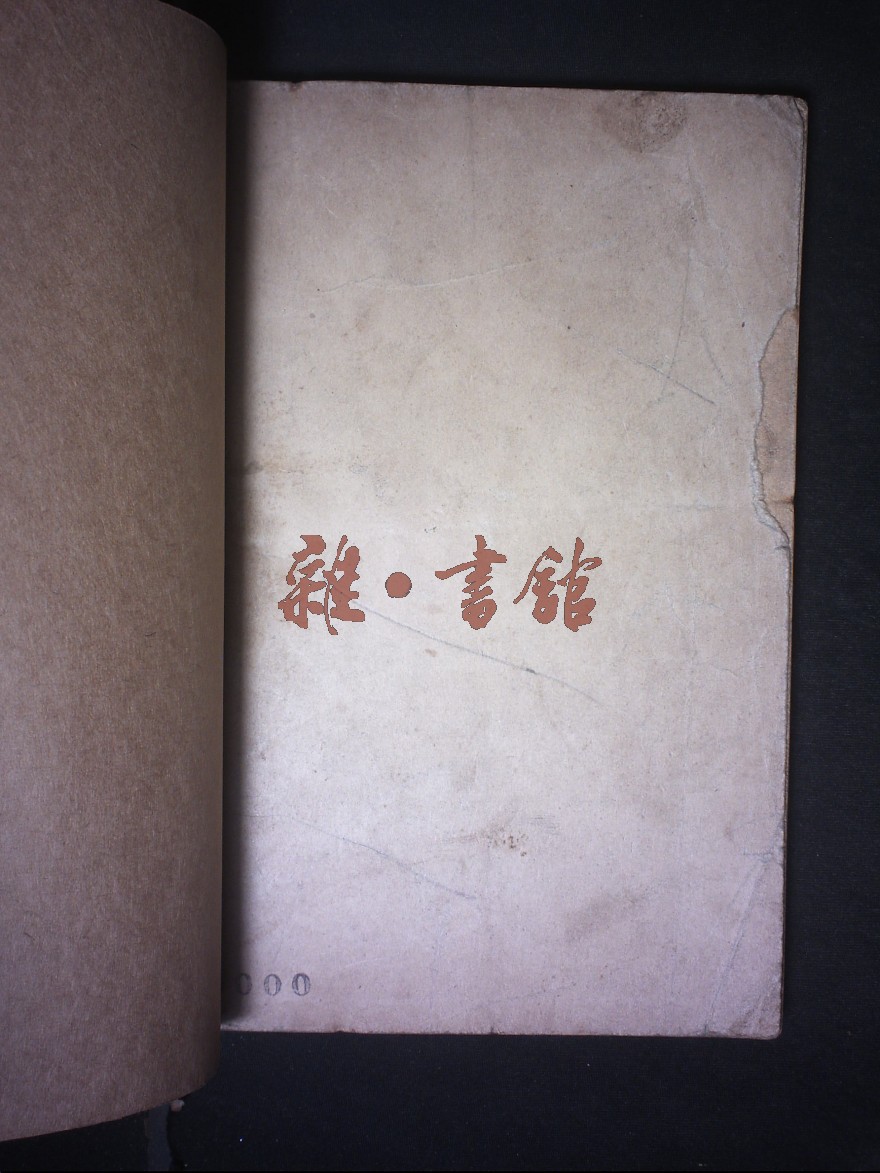 雜·書館
000